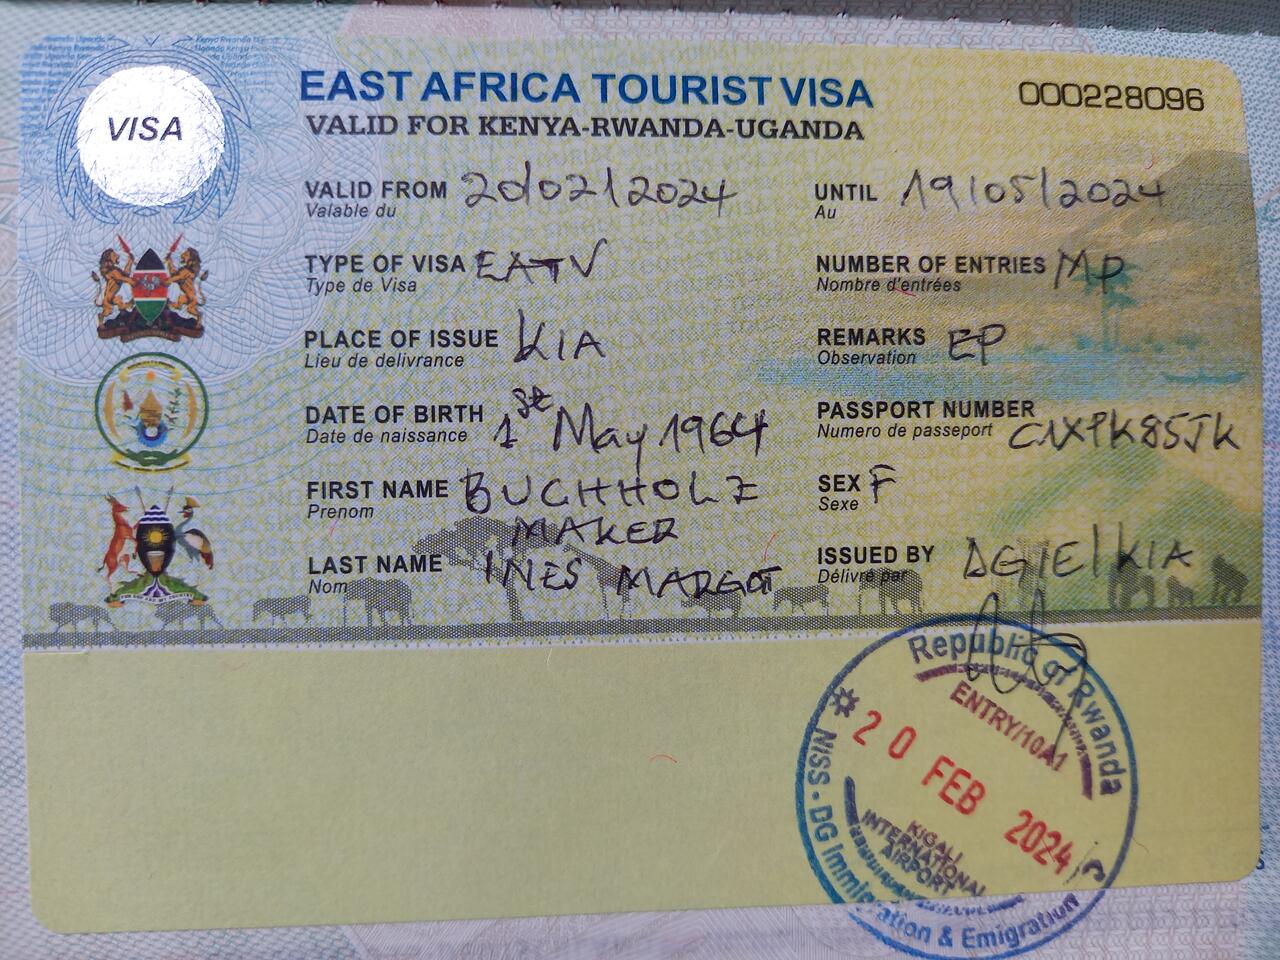 VISA
EAST AFRICA TOURIST VISA
000228096
VALID FOR KENYA-RWANDA-UGANDA
VALID FROM 20/02/2024
Valable du
UNTIL 19/05/2024
Au
TYPE OF VISA EATV
Type de Visa
NUMBER OF ENTRIES MP
Nombre d'entrées
PLACE OF ISSUE KIA
Lieu de delivrance
REMARKS EP
Observation
DATE OF BIRTH 1st May 1964
Date de naissance
PASSPORT NUMBER
Numero de passeport
FIRST NAME BUCHHOLZ
Prenom
MAKER
SEX F
Sexe
LAST NAME INES MARGOT
Nom
ISSUED BY DGIE/KIA
Délivré par
Republic of Rwanda
ENTRY/10A1
20 FEB 2024
KIGALI
INTERNATIONAL
AIRPORT
NISS - DG Immigration & Emigration